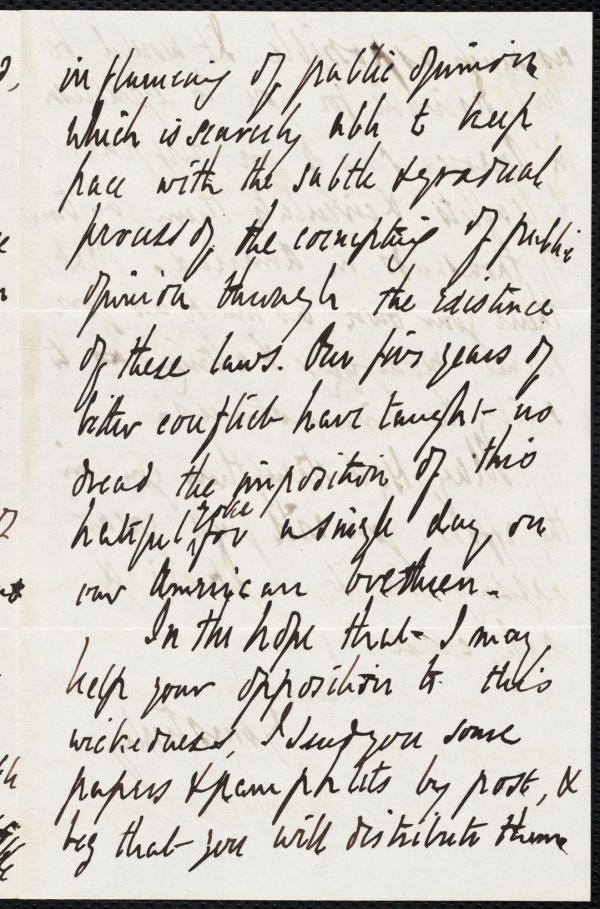 influencing of public opinion
which is scarcely able to keep
pace with the subtle & gradual
process of the corrupting of public
opinion through the existence
of these laws. Our five years of
bitter conflict have taught us
dread the imposition of this
hateful yoke for a single day on
our American brethren.
In the hope that I may
help your opposition to this
wickedness, I send you some
papers & pamphlets by post, &
beg that you will distribute them